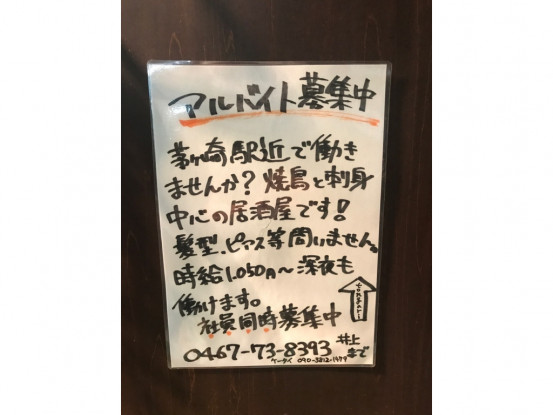 アルバイト募集中
茅ヶ崎駅近で働き
ませんか？焼鳥と刺身
中心の居酒屋です！
髪型、ピアス等問いません。
時給1,050円〜深夜も
働けます。
社員同時募集中
0467-73-8393 井上まで
ケータイ 090-3812-1979